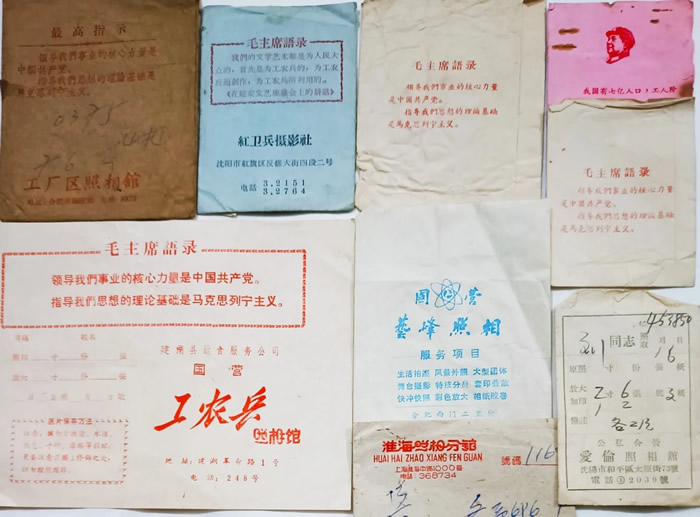 最高指示
领导我們事业的核心力量是
中国共产党。
指导我們思想的理論基础是
马克思列宁主义。
0375
工厂区照相館
毛主席語录
我們的文学艺术都是为人民大
众的,首先是为工农兵的,为工农
兵而創作,为工农兵所利用的。
《在延安文艺座談会上的讲話》
紅卫兵摄影社
沈阳市紅旗区反修大街四段二号
電話 3.2151
3.2764
毛主席語录
領导我們事业的核心力量
是中國共产党。
指导我們思想的理論基础
是馬克思列宁主义。
我国有七亿人口,工人阶
毛主席語录
指导我們事业的核心力量
是中國共产党。
指导我們思想的理論基础
是馬克思列宁主义。
毛主席語录
領导我們事业的核心力量是中国共产党。
指导我們思想的理論基础是马克思列宁主义。
建湖县飲食服务公司
国营
工农兵
照相馆
地址:建湖革命路1号
电话:248号
照片保存方法
國营
藝峰照相
服务项目
生活拍照 风景外照 大型团体
舞台摄影 特技分身 套印叠放
快冲快照 彩色放大 相纸胶卷
淮海照相分館
HUAI HAI ZHAO XIANG FEN GUAN
上海淮海中路1000号
电話:368734
號碼 116
453850
同志
月 日
16
原照 寸 份 張 紙
放大 2寸 6張
加印
備註
公私合营
愛倫照相館
沈阳市和平區太原街73號
電話②2039號